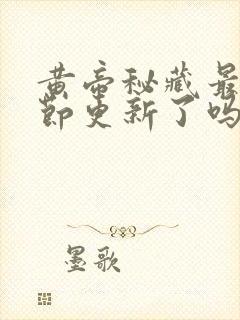 黄帝秘藏最
节更新了吗
墨歌